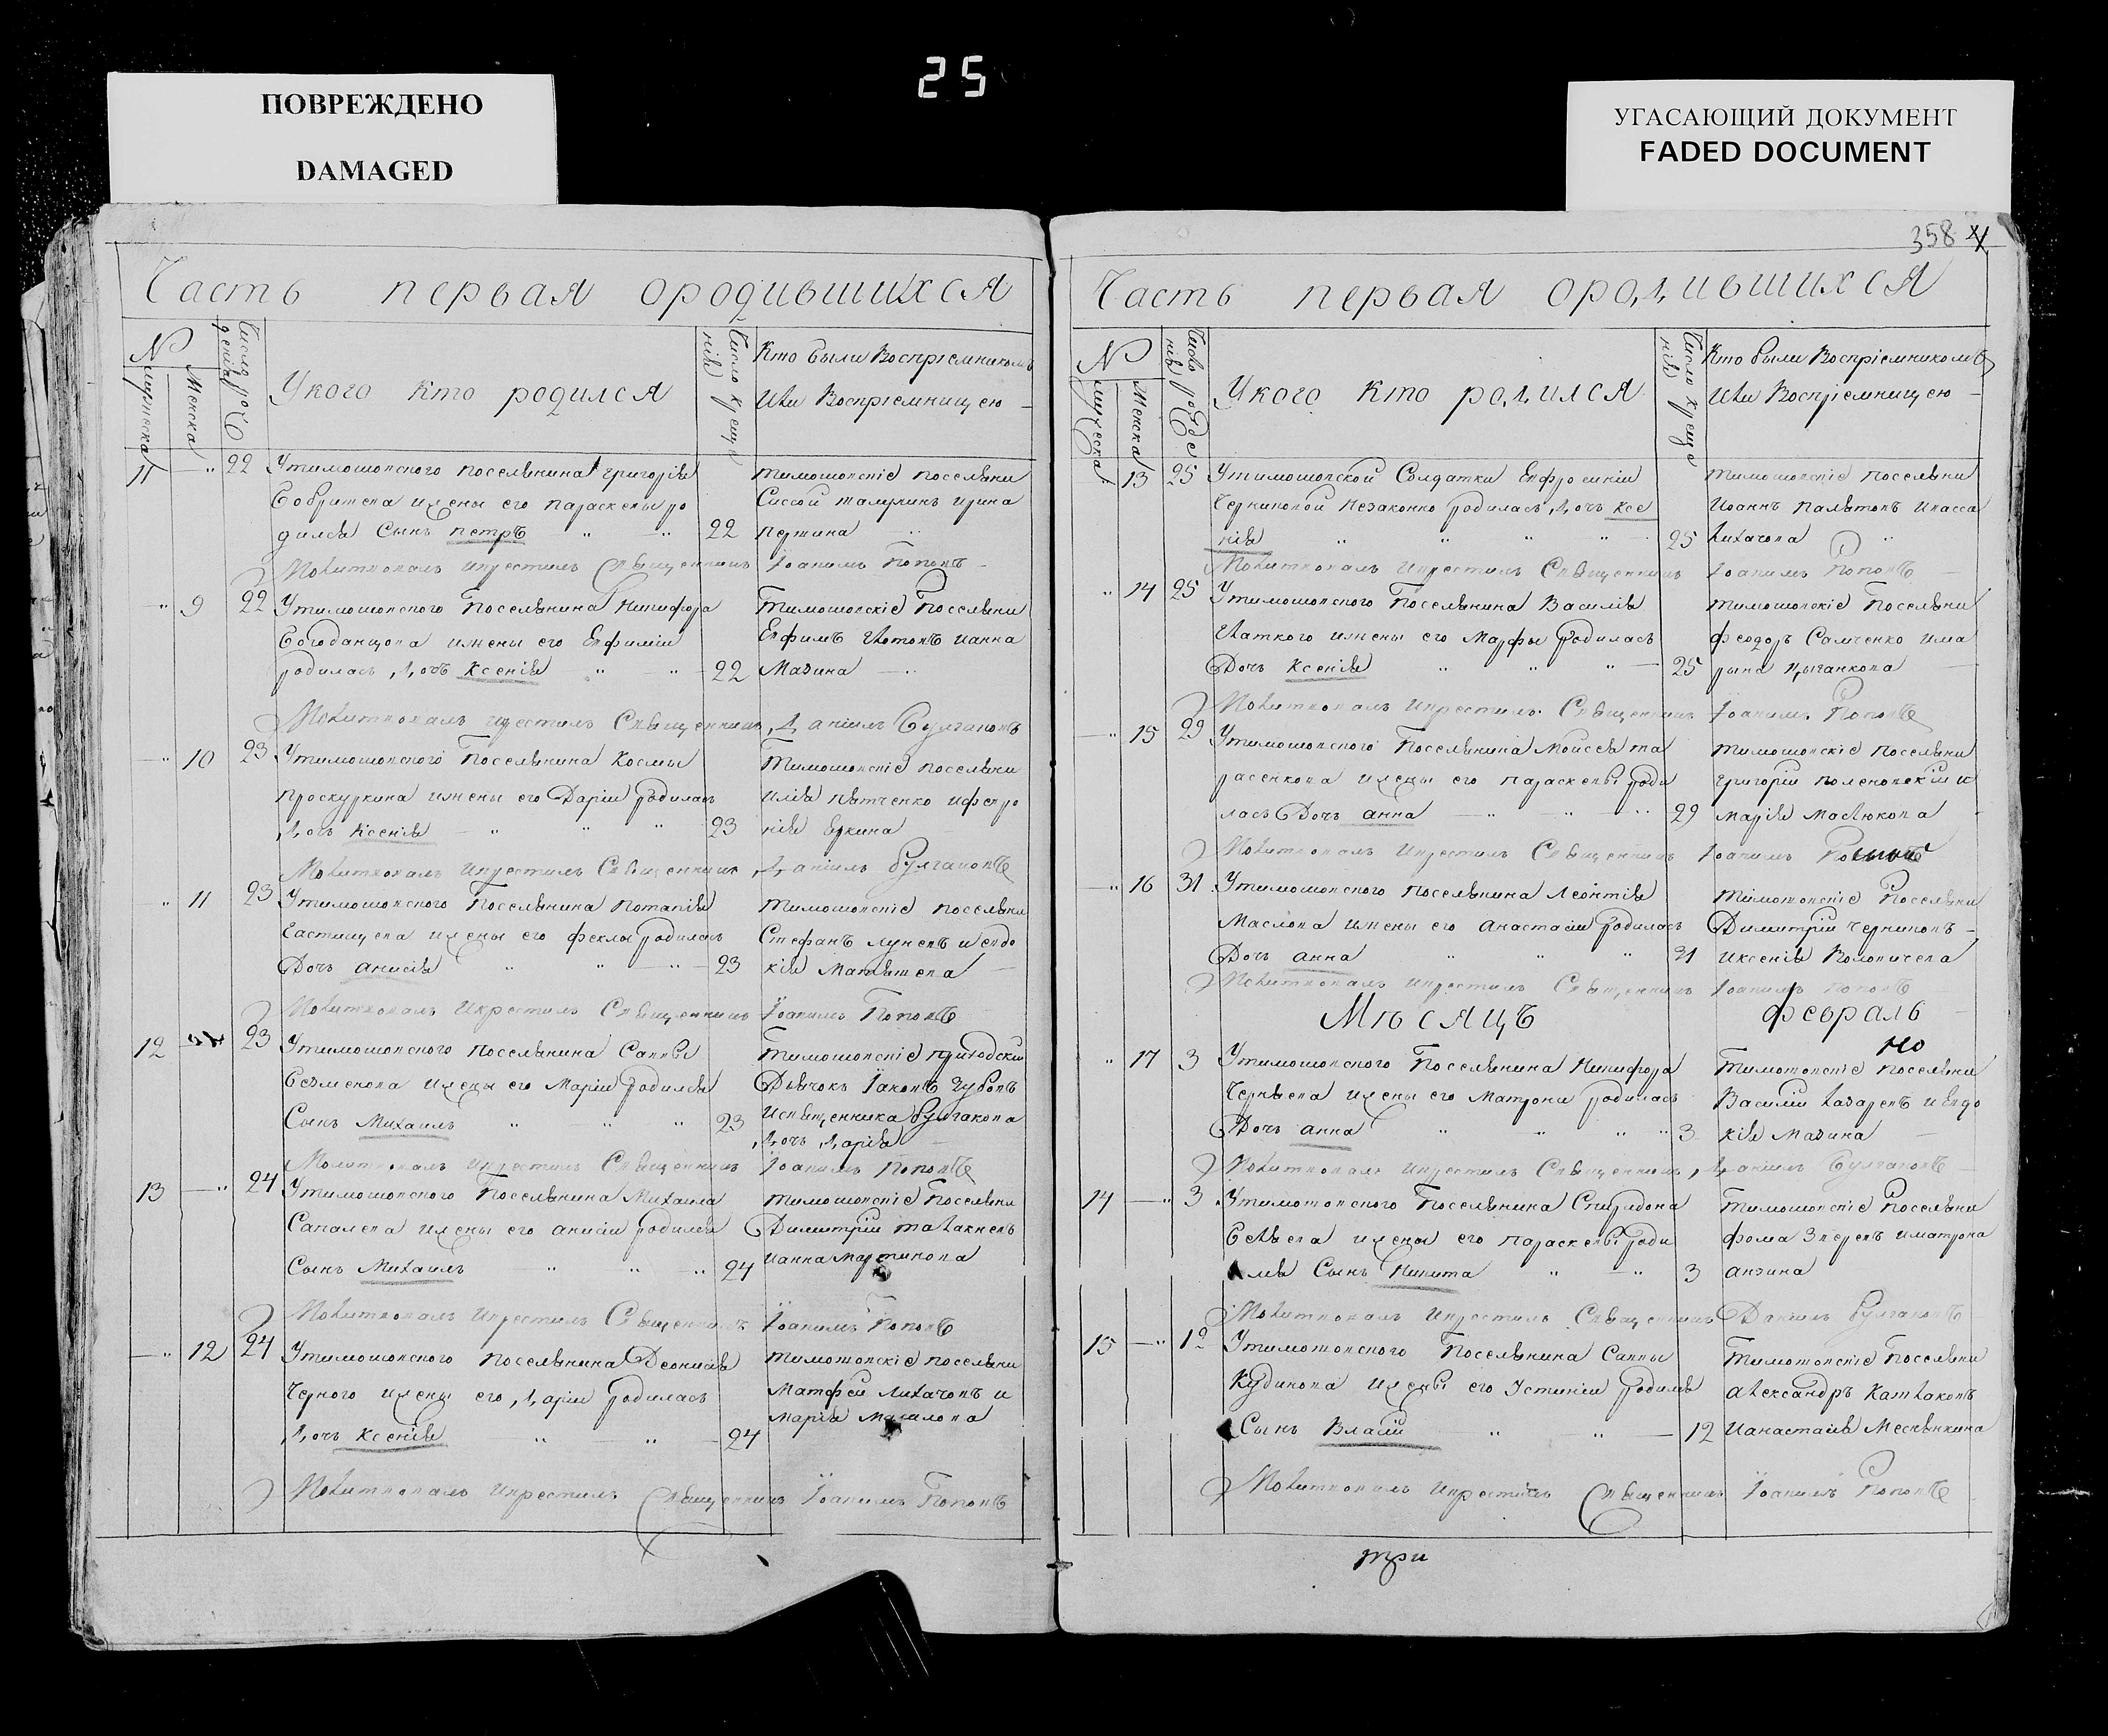 25
ПОВРЕЖДЕНО
DAMAGED
УГАСАЮЩИЙ ДОКУМЕНТ
FADED DOCUMENT
Часть первая ородившихся
№
мужеска
Женска
Число рожденія
Укого кто родился
Число крещенія
Кто были Воспріемникомъ
Или Воспріемницею
11 22 Утимошовского поселянина Григорія
и жены его параскевы ро
дился Сынъ петръ 22
тимошовскіе поселяни
ирина
Молитвовалъ икрестилъ Священникъ Іоакимъ Поповъ
9 22 Утимошовского Поселянина Никифора
Богоданцова ижены его Евфиміи
родилась Дочь Ксенія 22
Тимошовскіе Поселяни
Евфимъ ианна
Мазина
Молитвовалъ икрестилъ Священникъ Даніилъ Булгаковъ
10 23 Утимошовского Поселянина Космы
Проскуркина ижены его Даріи родилась
Дочь Ксенія 23
Тимошовскіе поселяни
Илія ифевро
нія Еркина
Молитвовалъ икрестилъ Священникъ Даніилъ Булгаковъ
11 23 Утимошовского Поселянина Потапія
ижены его феклы родилась
Дочь анисія 23
тимошовскіе поселяни
Стефанъ Луневъ иевдо
кія
Молитвовалъ Икрестилъ Священникъ Іоакимъ Поповъ
12 23 Утимошовского поселянина Саввы
ижены его Маріи родился
Сынъ Михаилъ 23
Тимошовскіе
Дьячокъ Іаковъ Зубовъ
Исвященника Булгакова
Дочь Дарія
Молитвовалъ икрестилъ Священникъ Іоакимъ Поповъ
13 24 Утимошовского Поселянина Михаила
Савалева ижены его анисіи родился
Сынъ Михаилъ 24
тимошовскіе Поселяни
Димитрій
ианна Мартинова
Молитвовалъ икрестилъ Священникъ Іоакимъ Поповъ
12 24 Утимошовского поселянина Деонисія
Черного ижены его Даріи родилась
Дочь Ксенія 24
тимошовскіе поселяни
Матфей Лихачовъ и
Марія
Молитвовалъ икрестилъ Священникъ Іоакимъ Поповъ
358
Часть первая ородившихся
№
мужеска
Женска
Число рожденія
Укого кто родился
Число крещенія
Кто были Воспріемникомъ
Или Воспріемницею
13 25 Утимошовской Солдатки Евфросиніи
Черниковой Незаконно родилась Дочь Ксе
нія 25
тимошовскіе поселяни
Иоаннъ
Лихачова
Молитвовалъ икрестилъ Священникъ Іоакимъ Поповъ
14 25 Утимошовского Поселянина Василія
ижены его Марфы родилась
Дочь Ксенія 25
тимошовскіе Поселяни
феодоръ Самченко има
рина Цыганкова
Молитвовалъ икрестилъ Священникъ Іоакимъ Поповъ
15 29 Утимошовского Поселянина Моисея та
расенкова ижены его параскевы роди
лась Дочь анна 29
тимошовскіе поселяни
григорій и
марія Маслюкова
Молитвовалъ икрестилъ Священникъ Іоакимъ
16 31 Утимошовского поселянина Леонтія
Маслова ижены его анастасіи родилась
Дочь анна 31
тимошовскіе Поселяни
Димитрій Черниковъ
иксенія
Молитвовалъ икрестилъ Священникъ Іоакимъ Поповъ
Месяцъ февраль
17 3 Утимошовского Поселянина Никифора
Черняева ижены его Матроны родилась
Дочь анна 3
Тимошовскіе поселяни
Василій Лазаревъ иевдо
кія Мазина
Молитвовалъ икрестилъ Священникъ Даніилъ Булгаковъ
14 3 Утимошовского Поселянина Спиридона
ижены его параскевы роди
лся Сынъ Никита 3
Тимошовскіе Поселяни
фома Зверевъ иматрона
анзина
Молитвовалъ икрестилъ Священникъ Даніилъ Булгаковъ
15 12 Утимошовского Поселянина Саввы
Кудинова ижены его Устиніи родился
Сынъ Власій 12
Тимошовскіе Поселяни
александръ
Ианастасія
Молитвовалъ икрестилъ Священникъ Іоакимъ Поповъ
три